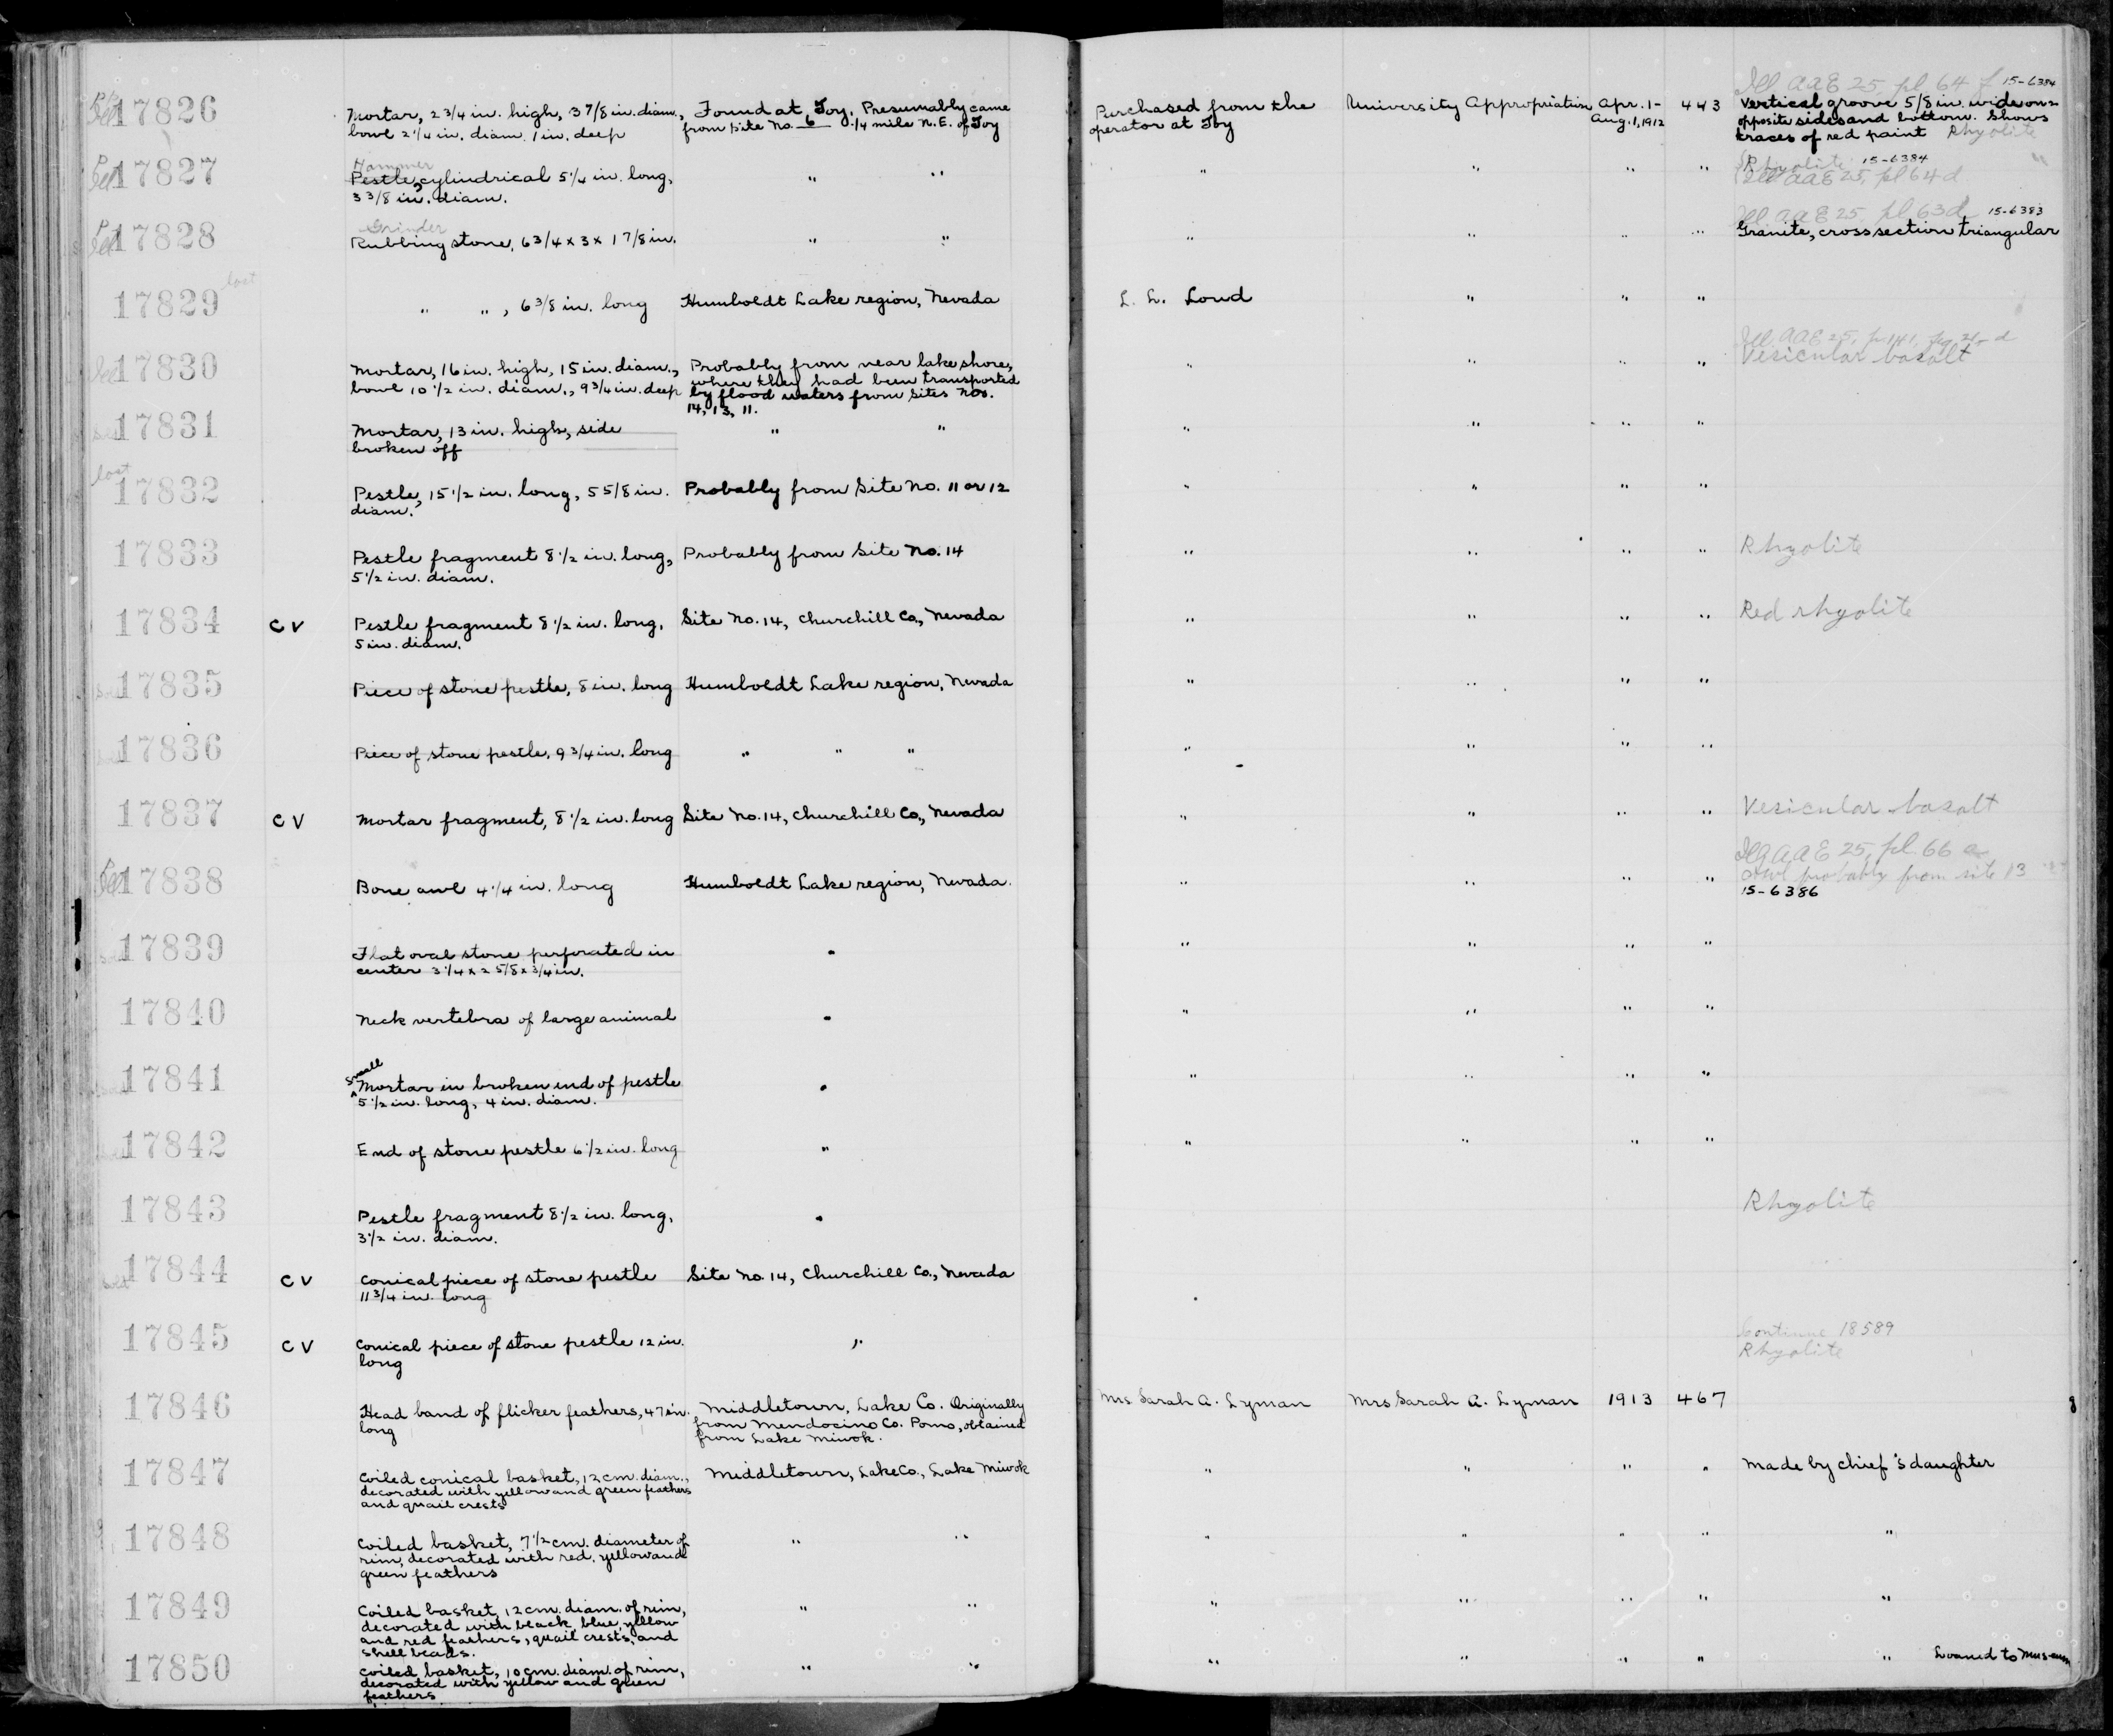 17826 Mortar, 2 3/4 in. high, 3 7/8 in. diam., Found at Toy. Presumably came Purchased from the University Appropriation Apr. 1- 443 Ill AAE 25, pl 64 f 15-6384
bowl 2 1/4 in. diam. 1 in. deep from site No. 6 1/4 mile N.E. of Toy operator at Toy Aug. 1, 1912 Vertical groove 5/8 in. wide on 2
opposite sides and bottom. Shows
traces of red paint Rhyolite
17827 Hammer
Pestle, cylindrical 5 1/4 in. long, " " " " " " Rhyolite 15-6384
3 3/8 in. diam. Ill AAE 25, pl 64 d
17828 Grinder Ill AAE 25, pl 63 d 15-6383
Rubbing stone, 6 3/4 x 3 x 1 7/8 in. " " " " " " Granite, cross section triangular
17829 lost " ", 6 3/8 in. long Humboldt Lake region, Nevada L. L. Loud " " "
17830 Mortar, 16 in. high, 15 in. diam., Probably from near lake shore, " " " " Ill. AAE 25, p. 141, fig
bowl 10 1/2 in. diam., 9 3/4 in. deep where they had been transported Vesicular basalt
by flood waters from Sites Nos.
14, 13, 11.
17831 Mortar, 13 in. high, side " " " " " "
broken off
17832 lost Pestle, 15 1/2 in. long, 5 5/8 in. Probably from Site No. 11 or 12 " " " "
diam.
17833 Pestle fragment 8 1/2 in. long, Probably from Site No. 14 " " " " Rhyolite
5 1/2 in. diam.
17834 CV Pestle fragment 8 1/2 in. long, Site No. 14, Churchill Co., Nevada " " " " Red rhyolite
5 in. diam.
17835 Piece of stone pestle, 8 in. long Humboldt Lake region, Nevada " " " "
17836 Piece of stone pestle, 9 3/4 in. long " " " " " " "
17837 CV Mortar fragment, 8 1/2 in. long Site No. 14, Churchill Co., Nevada " " " " Vesicular basalt
17838 Bone awl 4 1/4 in. long Humboldt Lake region, Nevada. " " " " AAE 25, pl. 66 a
probably from site 13
15-6386
17839 Flat oval stone perforated in " " " " "
center 3 1/4 x 2 5/8 x 3/4 in.
17840 Neck vertebra of large animal " " " " "
17841 small
Mortar in broken end of pestle " " " " "
5 1/2 in. long, 4 in. diam.
17842 End of stone pestle 6 1/2 in. long " " " " "
17843 Pestle fragment 8 1/2 in. long, " Rhyolite
3 1/2 in. diam.
17844 CV Conical piece of stone pestle Site No. 14, Churchill Co., Nevada
11 3/4 in. long
17845 CV Conical piece of stone pestle 12 in. " Continue 18589
long Rhyolite
17846 Head band of flicker feathers, 47 in. Middletown, Lake Co. Originally Mrs Sarah A. Lyman Mrs Sarah A. Lyman 1913 467
long from Mendocino Co. Pomo, obtained
from Lake Miwok.
17847 Coiled conical basket, 12 cm. diam., Middletown, Lake Co., Lake Miwok " " " " Made by chief's daughter
decorated with yellow and green feathers
and quail crests
17848 Coiled basket, 7 1/2 cm. diameter of " " " " " " "
rim, decorated with red, yellow and
green feathers
17849 Coiled basket, 12 cm. diam. of rim, " " " " " " "
decorated with black, blue, yellow
and red feathers, quail crests, and
shell beads.
17850 Coiled basket, 10 cm. diam. of rim, " " " " " " " Loaned to Museum
decorated with yellow and green
feathers